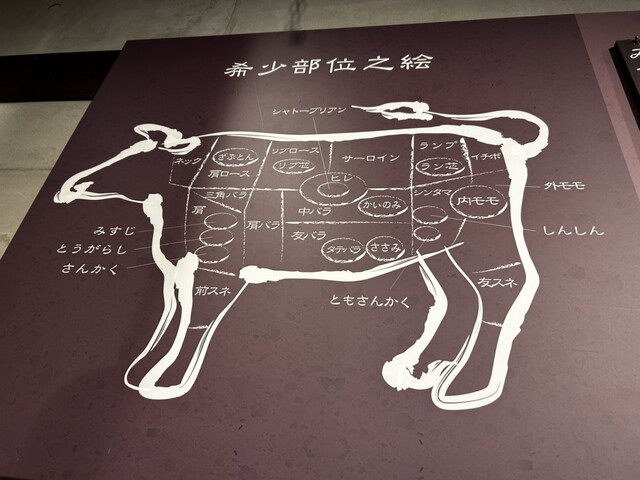 希少部位之絵
シャトーブリアン
ネック
ざぶとん
肩ロース
リブロース
リブ芯
サーロイン
ヒレ
ランプ
ラン芯
イチボ
三角バラ
肩
肩バラ
中バラ
かいのみ
シンタマ
内モモ
外モモ
みすじ
とうがらし
さんかく
友バラ
タテバラ
ささみ
しんしん
ともさんかく
前スネ
友スネ